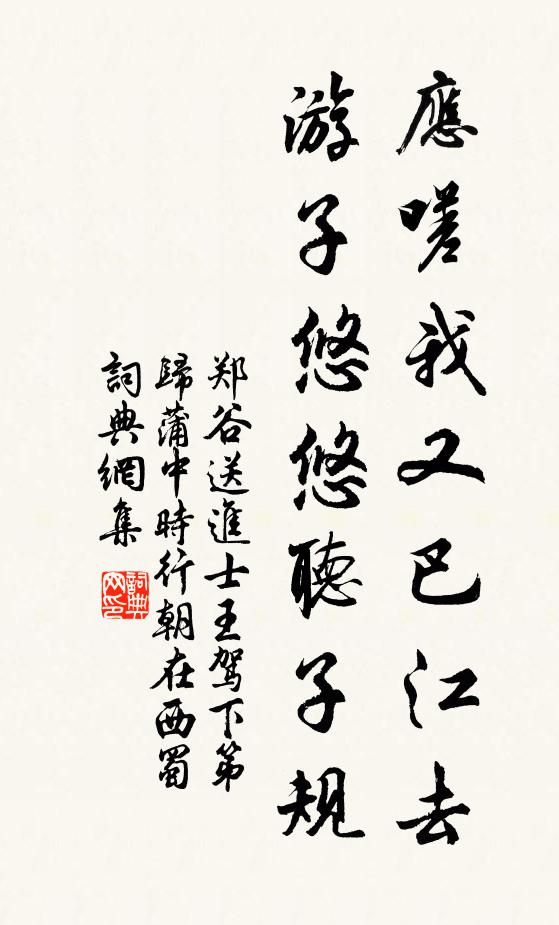 應嗟我又巴江去
游子悠悠聽子規
郑谷送進士王駕下第
歸蒲中時行朝在西蜀
詞典網集
詞典
网印